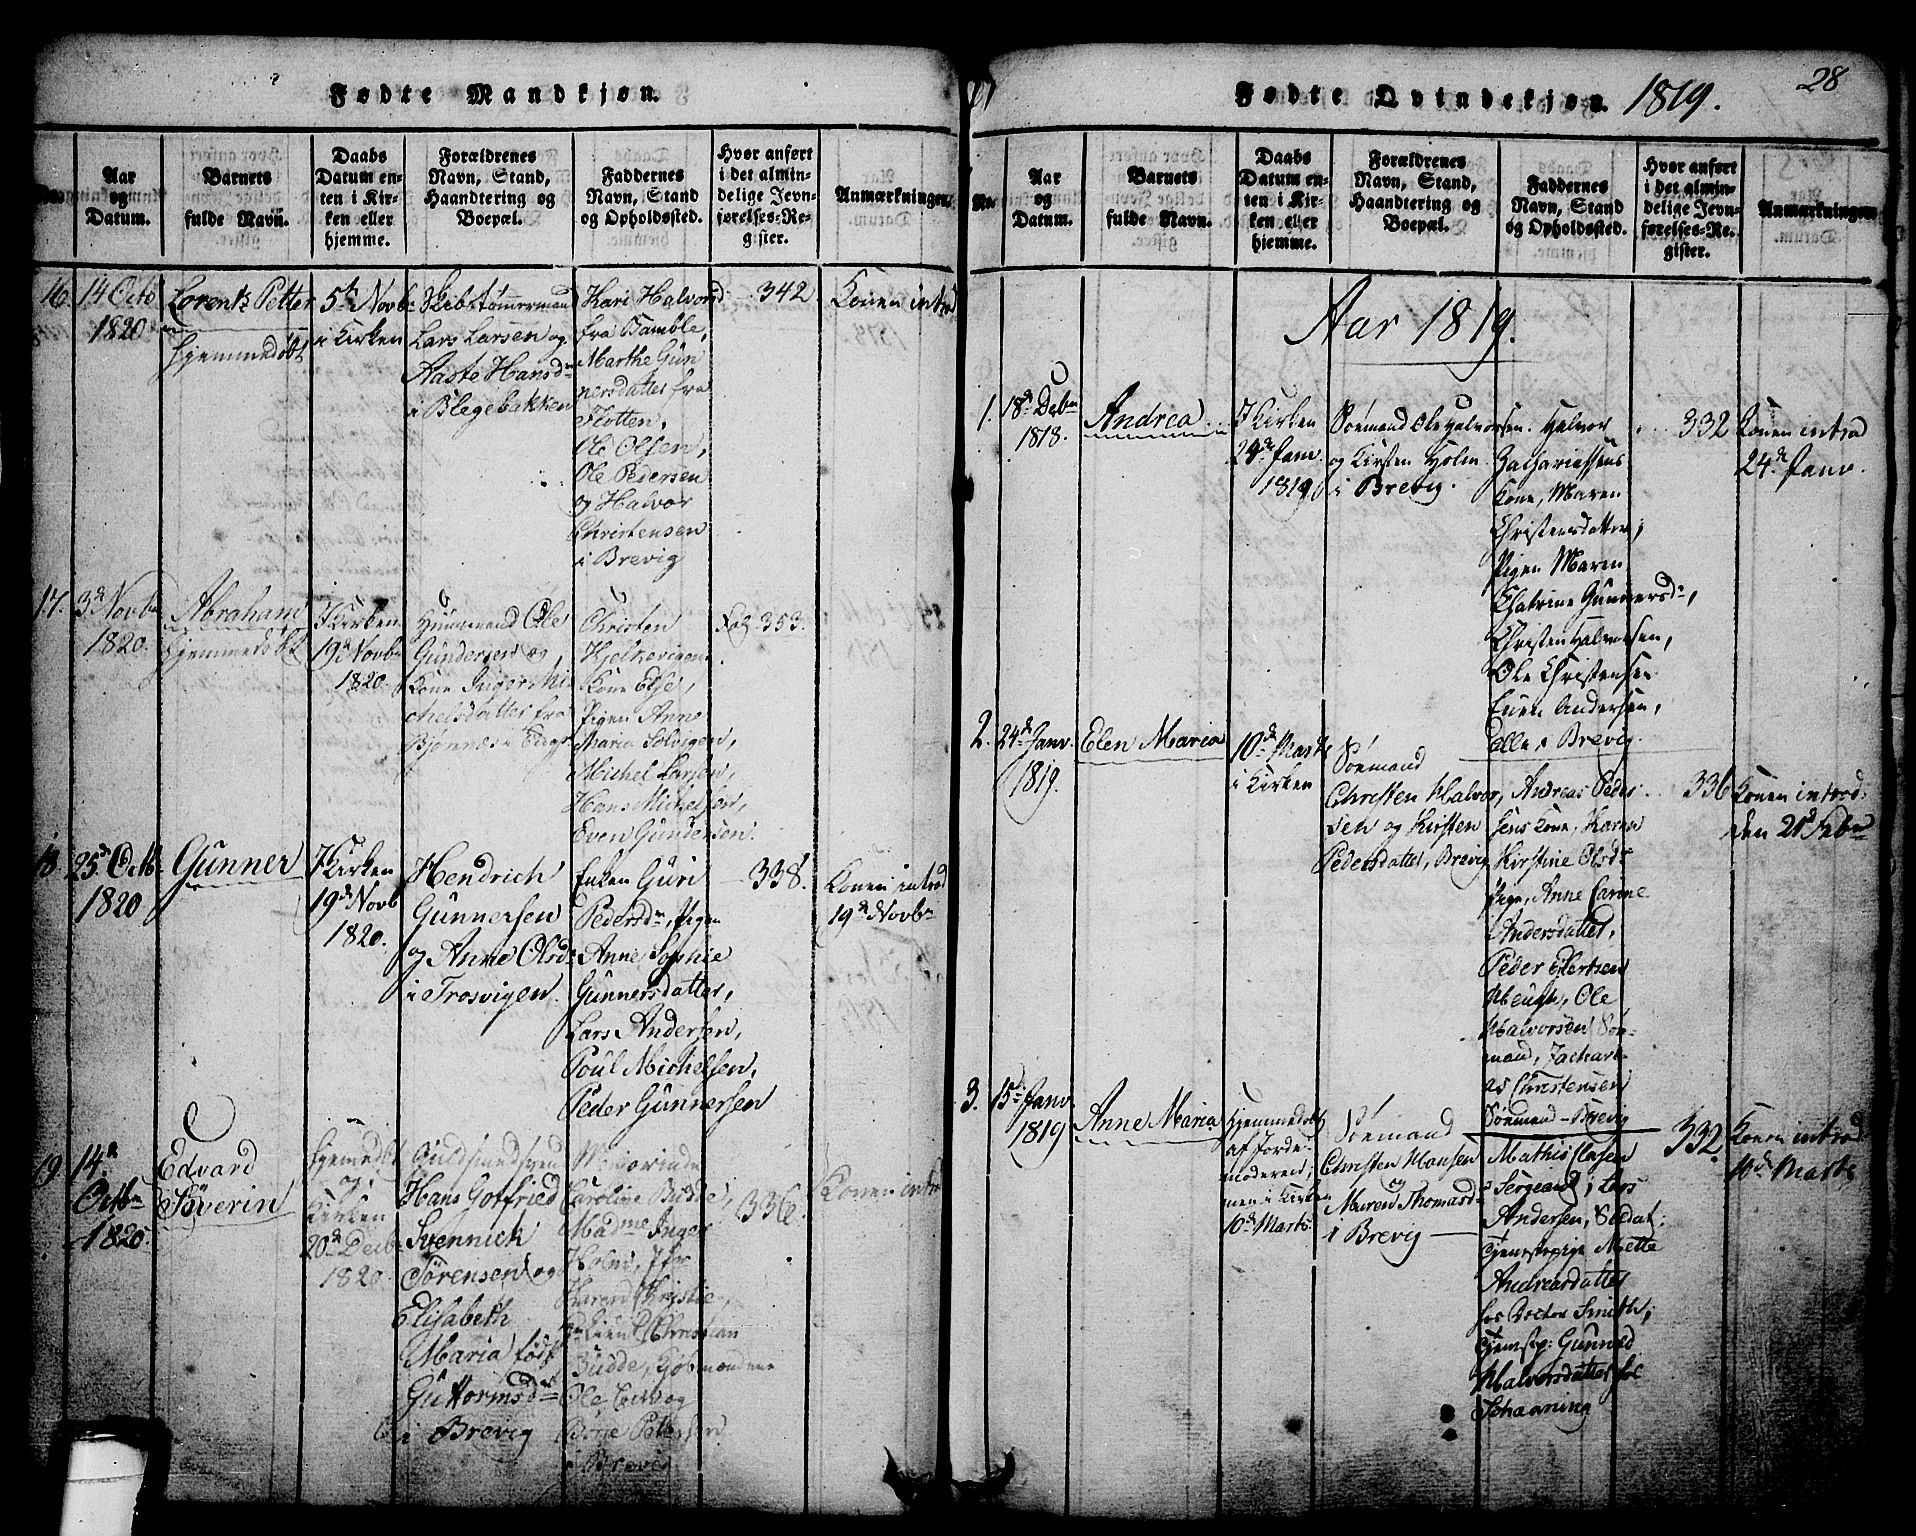 Fødte Mandkjøn.
No.
Aar
og
Datum.
Barnets
fulde Navn.
Daabs
Datum en-
ten i Kir-
ken eller
hjemme.
Forældrenes
Navn, Stand,
Haandtering og
Boepæl.
Faddernes
Navn, Stand
og Opholdssted.
Hvor anført
i det almin-
delige Jevn-
førelses-Re-
gister.
Anmærkninger.
16.
14 Octb
1820
Lorentz Petter
hjemmedøbt
5te Novb
i Kirken
Skibstømmermand
Lars Larsen og
Aaste Hansd.
i Blegebakken
Kari Halvorsd
fra Bamble,
Marthe Gun
nersdatter fra
Flotten,
Ole Olsen,
Ole Pedersen
og Halvor
Christensen
i Brevig
342
Konen introd
17.
3d Novb
1820.
Abraham
hjemmedøbt
I Kirken
19d Novb
1820.
Huusmand Ole
Gundersen og
Kone
Nelsdatter fra
Bjørnnæs i
Christen
Hjelkevigens
Kone Else,
Pigen Anne
Maria Solvigen,
Michel Larsen,
Hans Michelsen,
Even Gundersen
353.
18
25d Octb
1820
Gunner
I Kirken
19d Novb
1820.
Hendrich
Gunnersen
og Anne Olsd.
i Trosvigen.
Enken Guri
Pedersdn, Pigen
Anne Sophie
Gunnersdatter,
Lars Andersen,
Poul Michelsen,
Peder Gunnersen
338.
Konen introd
19d Novbr
19
14d
Octbr
1820.
Edvard
Severin
hjemedøbt
og i
Kirken
20d Decb.
1820.
Guldsmedsvend
Hans Gotfried
Svennich
Sørensen og
Elisabeth
Maria født
Guttormsdr
i Brevig
Caroline Budde,
Madme Inger
Holm, Jfr
Karen Christie,
Christian
Budde, Kjøbmændene
Ole
Petersen
i Brevig
336.
Konen introd
Fødte Qvindekjøn. 1819.
28
No.
Aar
og
Datum.
Barnets
fulde Navn.
Daabs
Datum en-
ten i Kir-
ken eller
hjemme.
Forældrenes
Navn, Stand,
Haandtering og
Boepæl.
Faddernes
Navn, Stand
og Opholdssted.
Hvor anført
i det almin-
delige Jevn-
førelses-Re-
gister.
Anmærkninger
Aar 1819.
1.
18d Debr
1818.
Andrea.
I Kirken
24de Janv.
1819
Søemand Ole Halvorsen
og Kirsten Holm
i Brevig.
Halvor
Zachariassens
Kone, Maren
Christensdatter,
Pigen Maren
Chatrine Gunnersdr,
Christen Halvorsen,
Ole Christensen
Even Andersen,
Alle i Brevig.
332
Konen introd
24d Janv.
2.
24d Janv.
1819.
Elen Maria
10de Marts
i Kirken
Søemand
Christen Halvor
sen og Kirsten
Pedersdatter, Brevig
Andreas Peder
sens Kone, Karen
Kirstine Olsdr
Pige, Anne Carine
Andersdatter,
Peder Evertsen
Ole
Halvorsen Søe-
mand, Zachari-
as Christensen
Søemand - Brevig
336
Konen introd:
den 21d Febr
3.
15de Janv.
1819
Anne Maria
hjemmedøbt
af Jorde
moderen,
men i Kirken
10d Marts.
Søemand
Christen Hansen
og
Maren Thomasd
i Brevig
Mathis Clasen
Sergeant, Lars
Andersen, Soldat,
Tjenestepige Mette
Andreasdatter
hos Doctor Smith,
Tjenstp: Gunnild
Halvorsdatter hos
Schaaning
332.
Konen introd
10d Marts